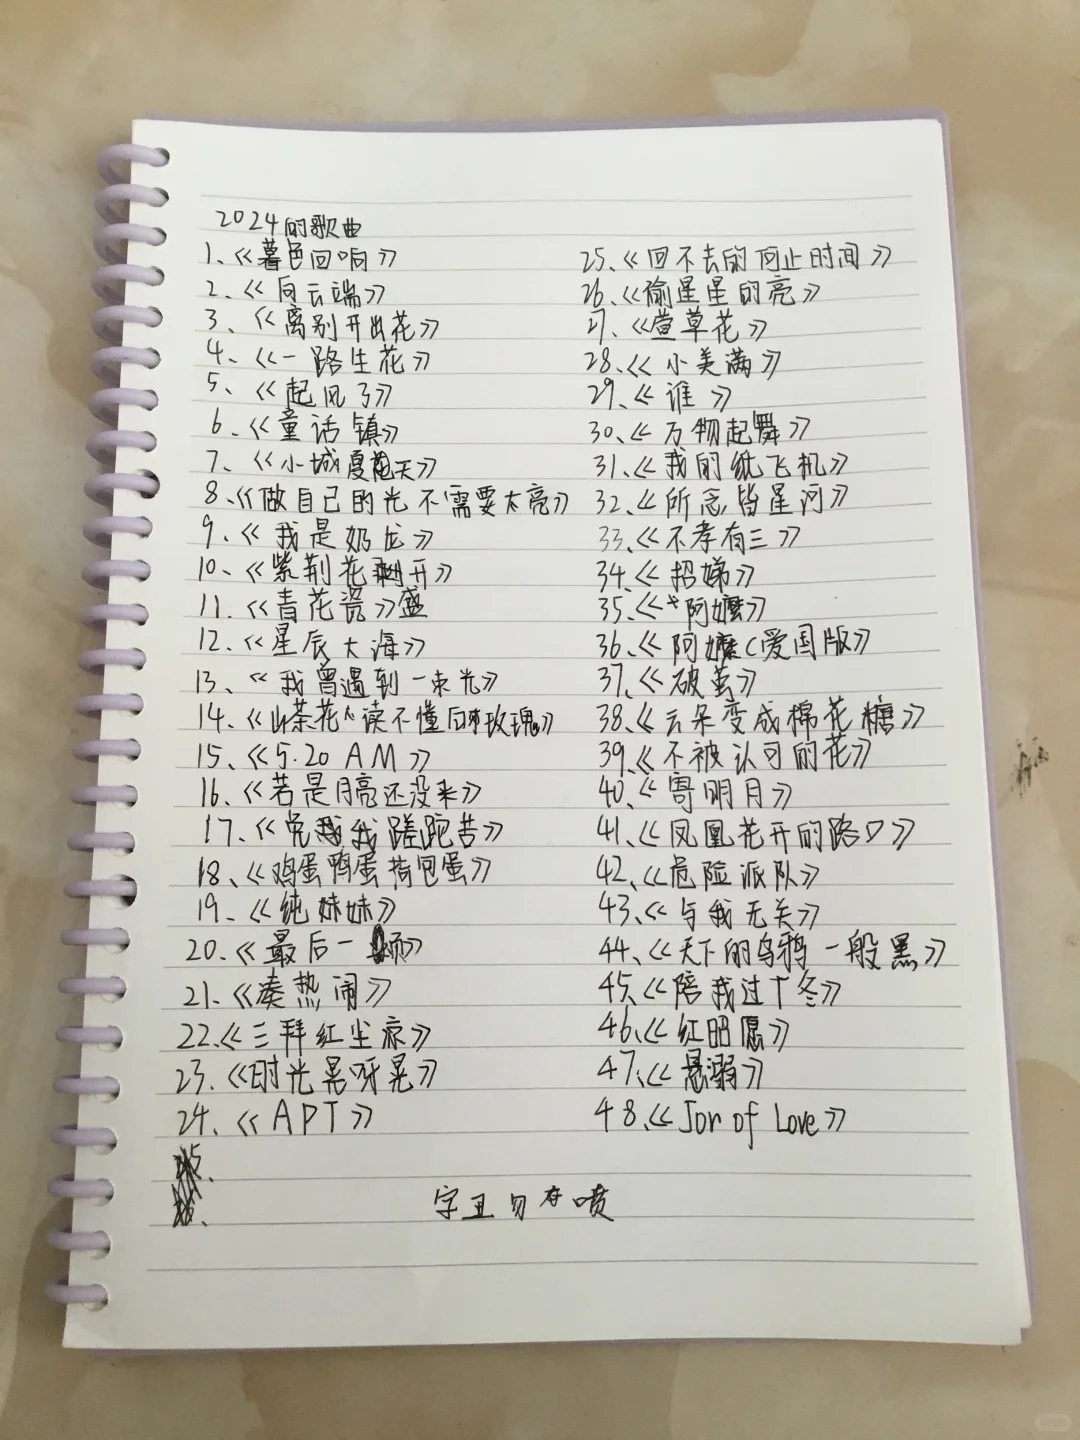 2024的歌曲
1、《暮色回响》
2、《向云端》
3、《离别开出花》
4、《一路生花》
5、《起风了》
6、《童话镇》
7、《小城夏天》
8、《做自己的光不需要太亮》
9、《我是奶龙》
10、《紫荆花开》
11、《青花瓷》盛
12、《星辰大海》
13、《我曾遇到一束光》
14、《山茶花读不懂白玫瑰》
15、《5:20 AM》
16、《若是月亮还没来》
17、《我蹉跎苦》
18、《鸡蛋鸭蛋荷包蛋》
19、《纯妹妹》
20、《最后一》
21、《凑热闹》
22、《三拜红尘凉》
23、《时光晃呀晃》
24、《APT》
25、《回不去的何止时间》
26、《偷星星的亮》
27、《萱草花》
28、《小美满》
29、《谁》
30、《万物起舞》
31、《我的纸飞机》
32、《所念皆星河》
33、《不孝有三》
34、《招娣》
35、《阿嬷》
36、《阿嬷(爱国版》
37、《破茧》
38、《云朵变成棉花糖》
39、《不被认可的花》
40、《寄明月》
41、《凤凰花开的路口》
42、《危险派队》
43、《与我无关》
44、《天下的乌鸦一般黑》
45、《陪我过个冬》
46、《红昭愿》
47、《悬溺》
48、《Jor of Love》
字丑勿喷